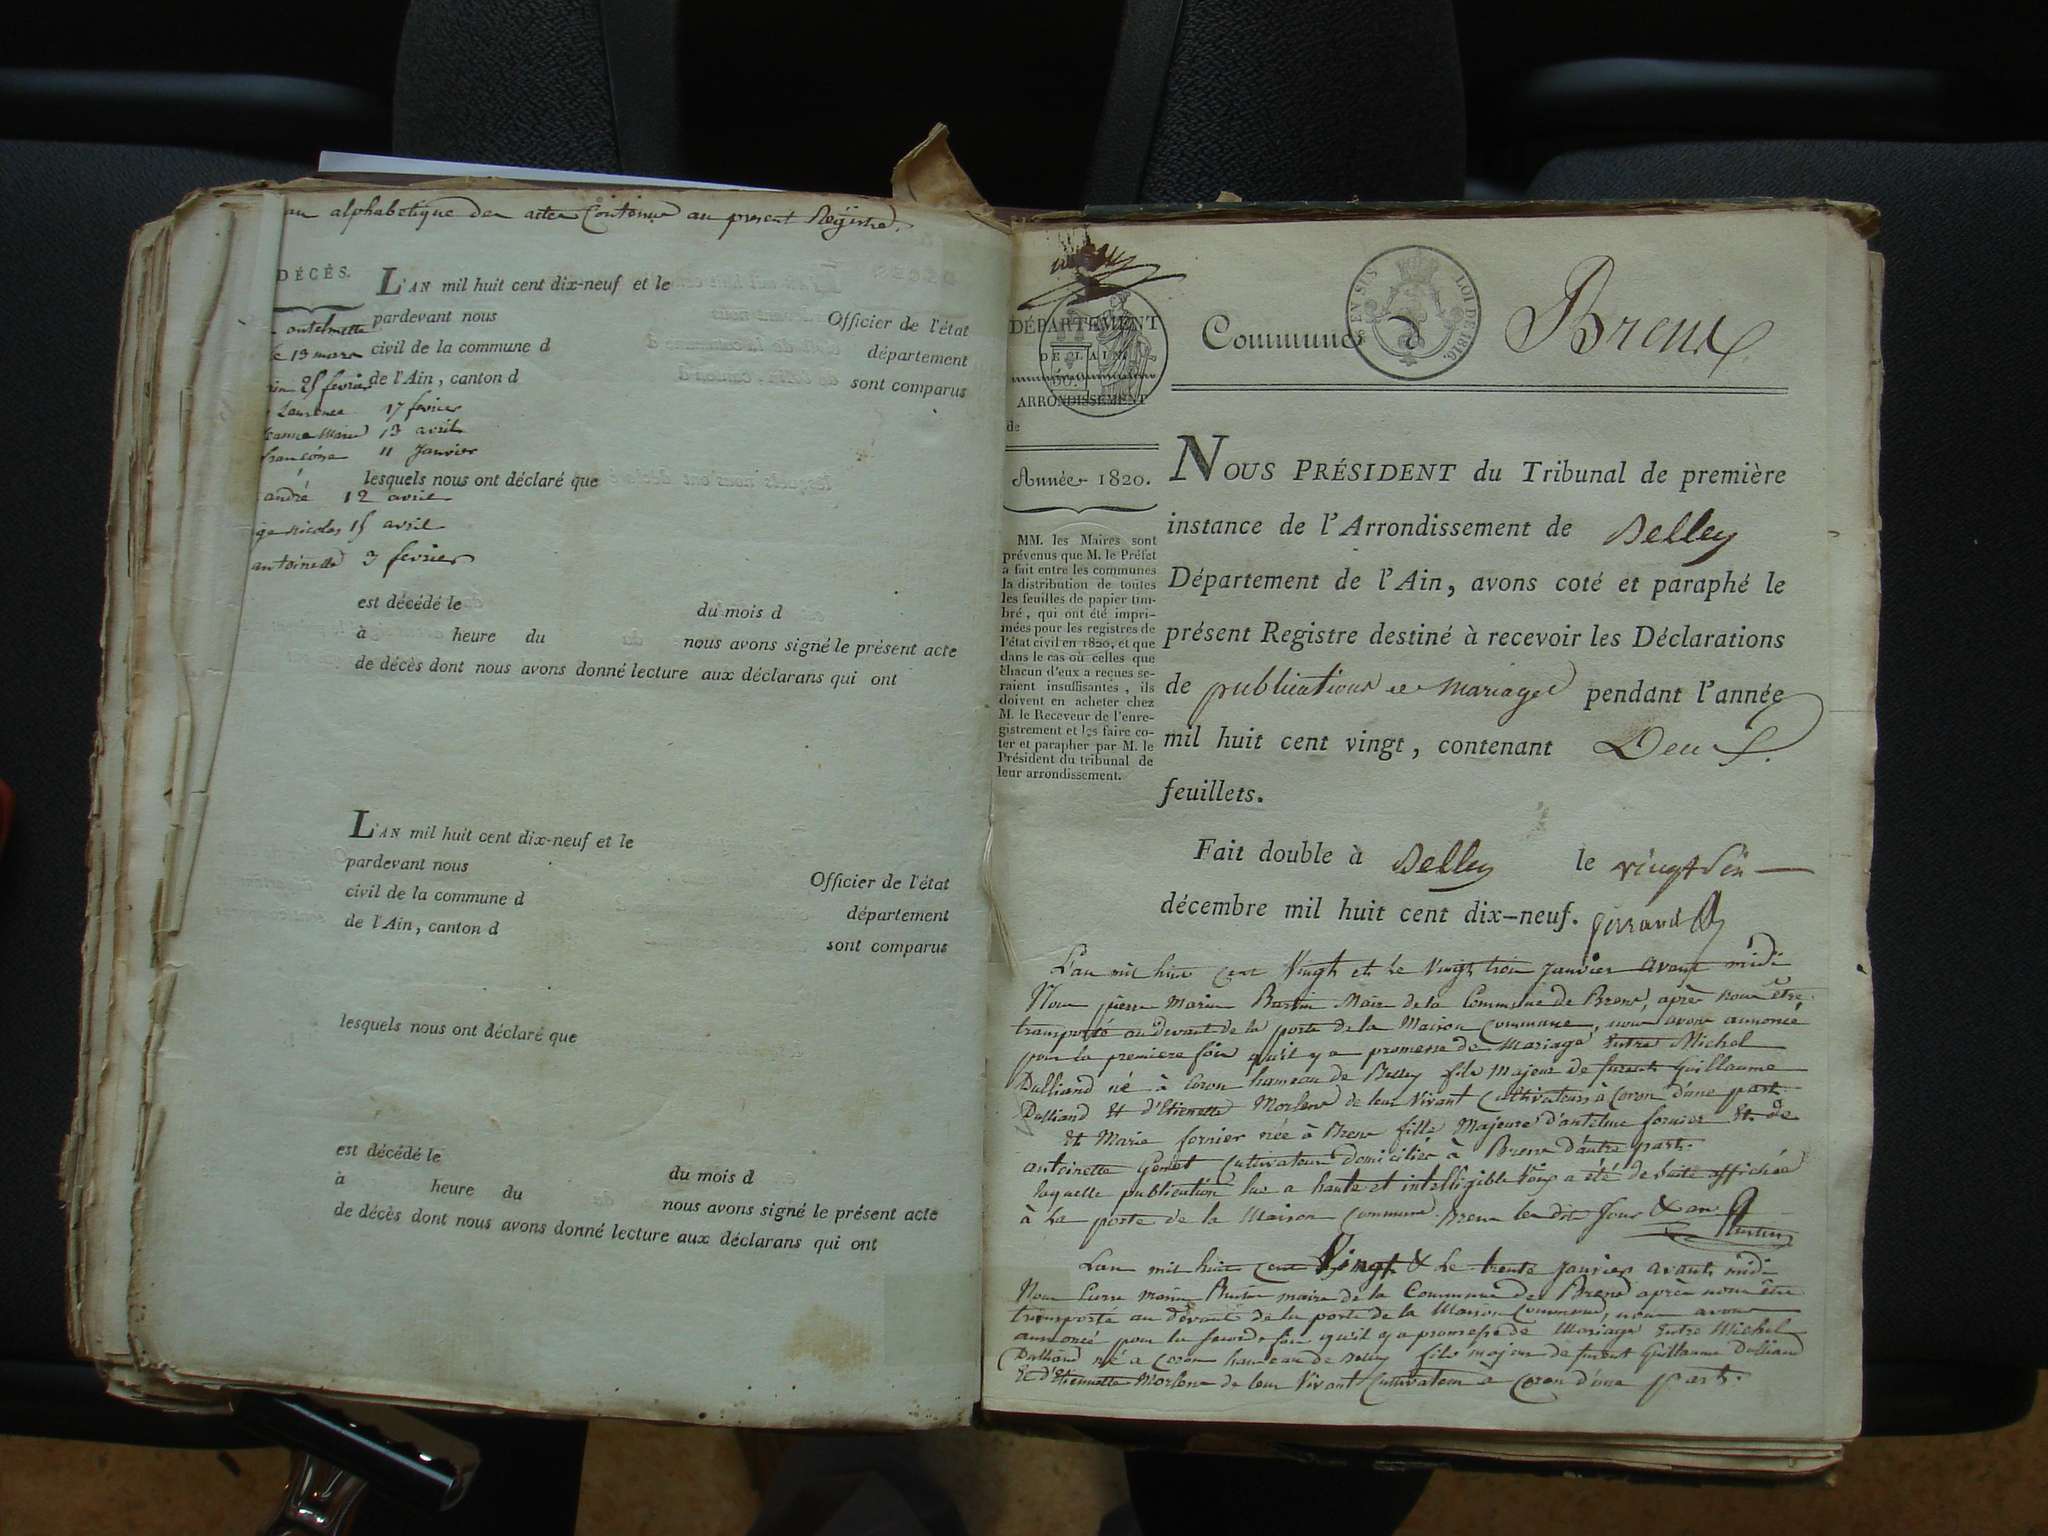 au alphabetique des actes Contenus au present Registre.
DÉCÈS.
L'AN mil huit cent dix-neuf et le
pardevant nous Officier de l'état
civil de la commune d département
de l'Ain, canton d sont comparus
antelmette
le 13 mars
25 fevrier
Laurence 17 fevrier
jeanne Marie 13 avril
francoise 11 Janvier
lesquels nous ont déclaré que
andré 12 avril
nicolas 15 avril
antoinette 3 fevrier
est décédé le du mois d
à heure du nous avons signé le présent acte
de décès dont nous avons donné lecture aux déclarans qui ont
L'AN mil huit cent dix-neuf et le
pardevant nous Officier de l'état
civil de la commune d département
de l'Ain, canton d sont comparus
lesquels nous ont déclaré que
est décédé le du mois d
à heure du nous avons signé le présent acte
de décès dont nous avons donné lecture aux déclarans qui ont
DÉPARTEMENT
DE L'AIN.
ARRONDISSEMENT
de
EN SUS LOI DE 1816.
Commune de Brens
Année 1820.
MM. les Maires sont
prévenus que M. le Préfet
a fait entre les communes
la distribution de toutes
les feuilles de papier tim-
bré, qui ont été impri-
mées pour les registres de
l'état civil en 1820, et que
dans le cas où celles que
chacun d'eux a reçues se-
raient insuffisantes, ils
doivent en acheter chez
M. le Receveur de l'enre-
gistrement et les faire co-
ter et parapher par M. le
Président du tribunal de
leur arrondissement.
NOUS PRÉSIDENT du Tribunal de première
instance de l'Arrondissement de Belley
Département de l'Ain, avons coté et paraphé le
présent Registre destiné à recevoir les Déclarations
de publications de mariages pendant l'année
mil huit cent vingt, contenant Deux
feuillets.
Fait double à Belley le vingt Six
décembre mil huit cent dix-neuf.
L'an mil huit cent Vingt et Le Vingt trois Janvier avant midi
Nous pierre Marin Maire de la Commune de Brens, après nous être
transporté au devant de la porte de la Maison Commune, nous avons annoncé
pour la premiere fois qu'il y a promesse de Mariage Entre Michel
Dulliand né à Coron hameau de Belley fils Majeur de furent Guillaume
Dulliand Et d'Etiennette Morlens de leur Vivant Cultivateurs à Coron d'une part
Et Marie fornier née à Brens fille Majeure d'antelme fornier Et de
antoinette Genet Cultivateurs domiciliés à Brens d'autre part.
laquelle publication lue a haute et intelligible Voix a été de Suite affichée
à La porte de la Maison Commune Brens les dits Jour & an
L'an mil huit cent Vingt & Le trente janvier avant midi
Nous Pierre Marin maire de la Commune de Brens après nous être
transporté au dévant de la porte de la Maison Commune, nous avons
annoncé pour la seconde fois qu'il y a promesse de Mariage Entre Michel
Dulliand né a Coron hameau de Belley fils majeur de furent Guillaume Dulliand
Et d'Etiennette Morlens de leur Vivant Cultivateurs à Coron d'une part.